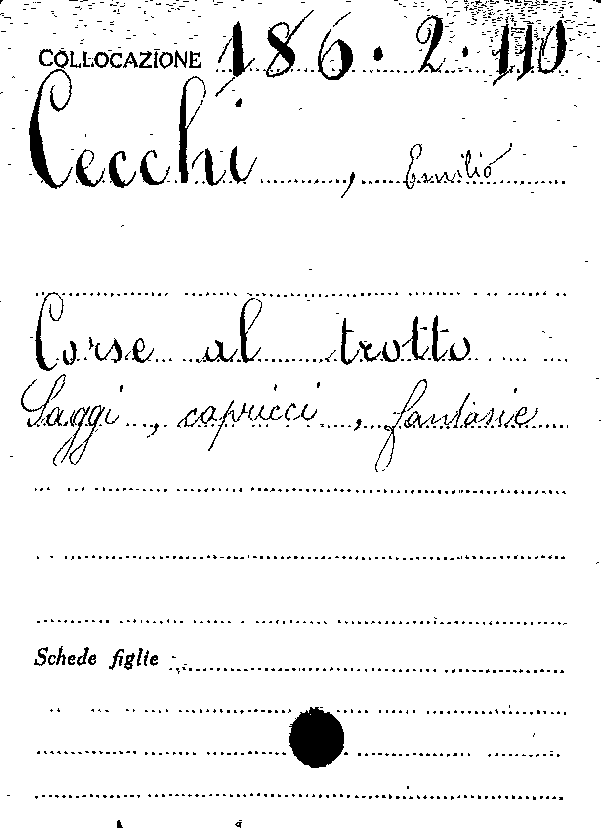 COLLOCAZIONE 186.2.110
Cecchi, Emilio
Corse al trotto
Saggi, capricci, fantasie
Schede figlie